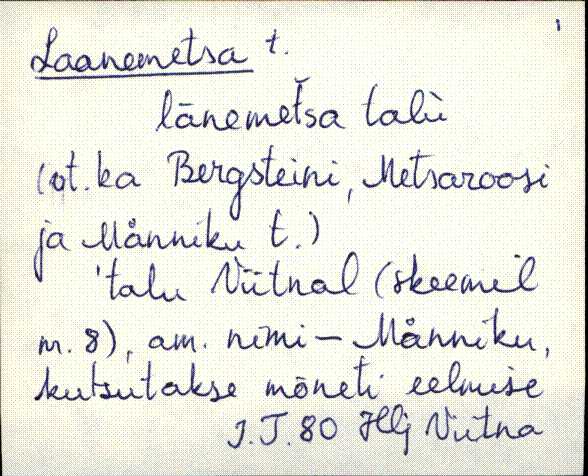 Laanemetsa t.
lānemetša talù
(vt. ka Bergsteini, Metsaroosi
ja Männiku t.)
'talu Viitnal (skeemil
nr. 8), am. nimi – Männiku,
kutsutakse mõneti eelmise
J.T. 80 Hlj Viitna